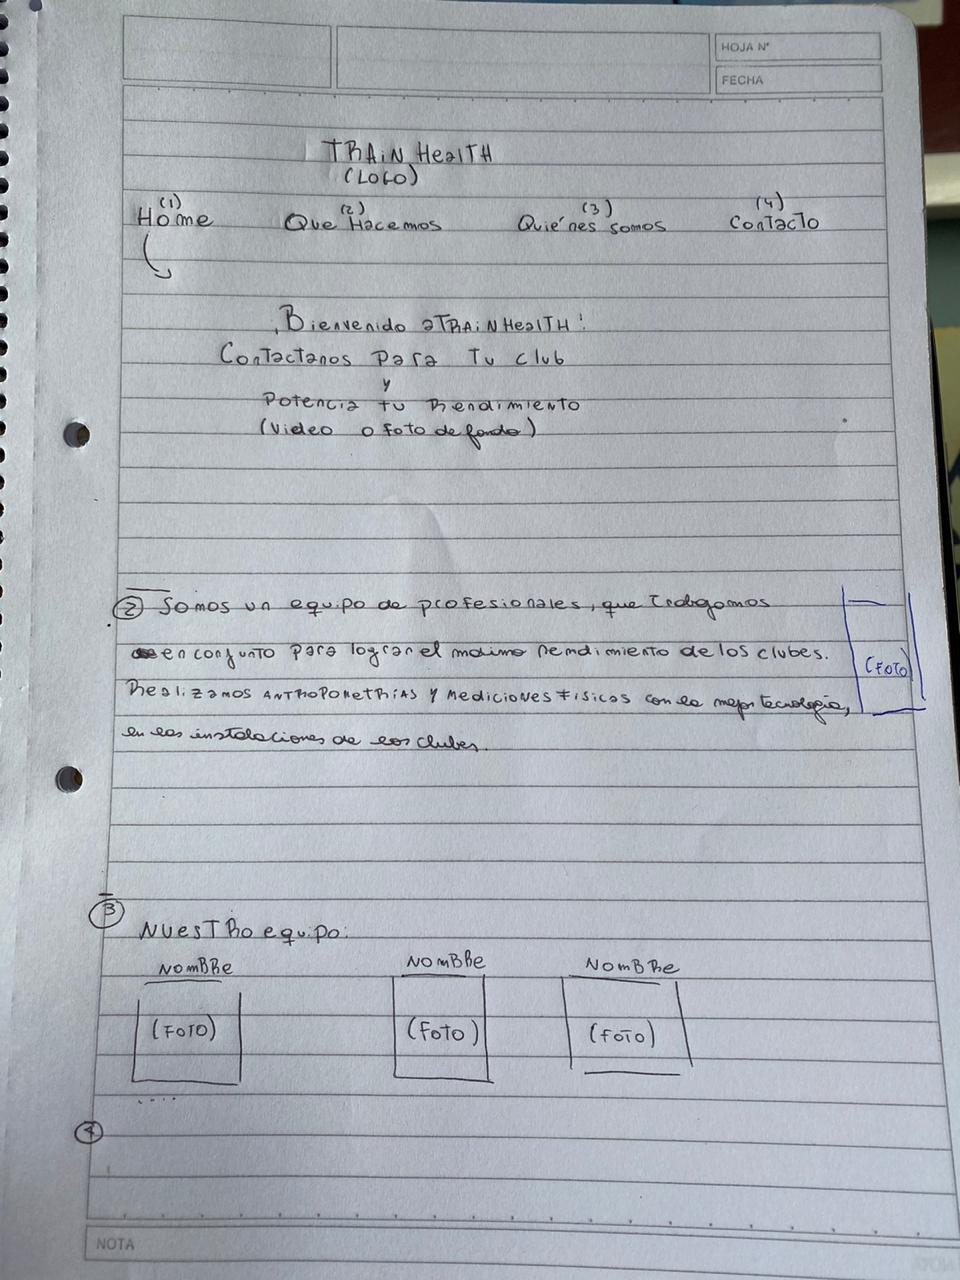 HOJA N°
FECHA
TRAIN HealTH
(LOGO)
(1) (2) (3) (4)
Home Que Hacemos Quiénes somos Contacto
¡Bienvenido a TRAiNHealTH!
Contactanos para Tu club
y
Potencia tu Rendimiento
(Video o foto de fondo)
2 Somos un equipo de profesionales, que trabajamos
en conjunto para lograr el maximo rendimiento de los clubes.
(FOTO)
Realizamos ANTROPOMETRIAS y mediciones Fisicas con la mejor tecnologia,
en las instalaciones de los clubes.
3
NUESTRO equipo:
NOMBRe NOMBRe NOMBRe
(FOTO) (FOTO) (FOTO)
....
4
NOTA